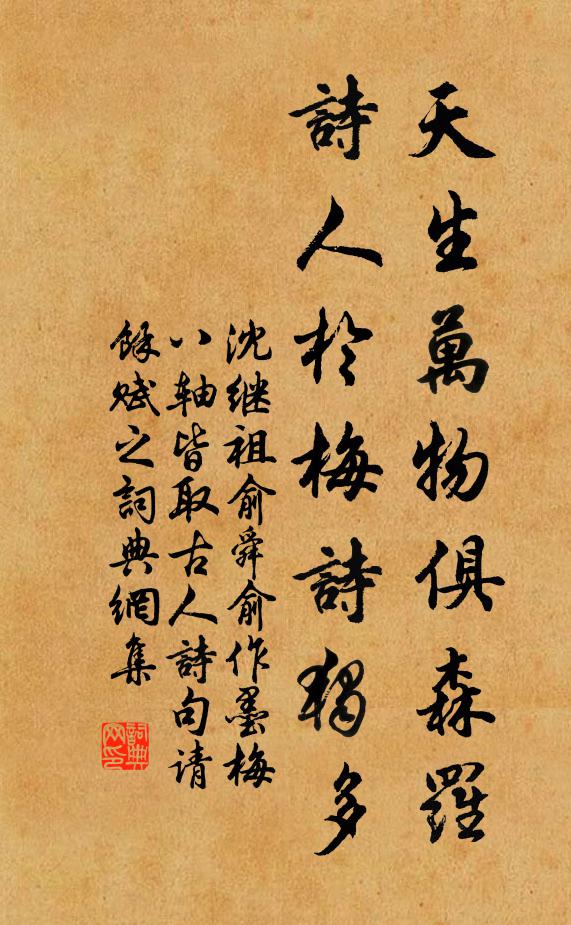 天生萬物俱森羅
詩人於梅詩獨多
沈继祖俞舜俞作墨梅
八轴皆取古人詩句请
餘赋之詞典網集
詞典網印